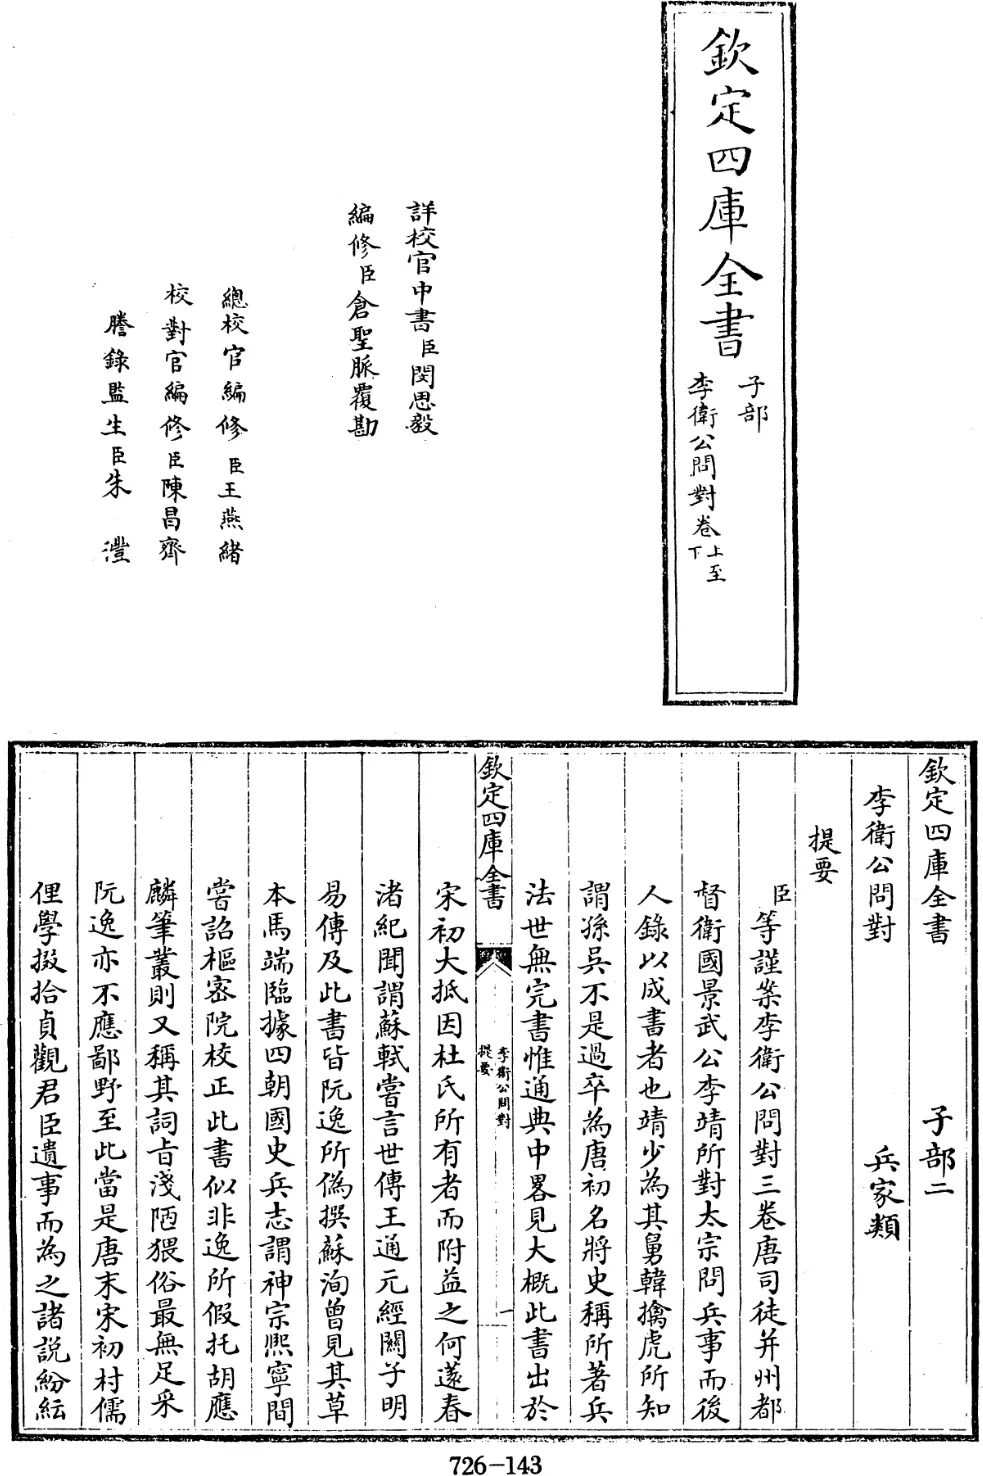 欽定四庫全書
子部
李衛公問對卷上至下
詳校官中書臣閔思毅
編修臣倉聖脈覆勘
總校官編修臣王燕緒
校對官編修臣陳昌齊
謄錄監生臣朱灃
欽定四庫全書 子部二
李衛公問對 兵家類
提要
臣等謹案李衛公問對三卷唐司徒并州都
督衛國景武公李靖所對太宗問兵事而後
人錄以成書者也靖少為其舅韓擒虎所知
謂孫吳不是過卒為唐初名將史稱所著兵
法世無完書惟通典中畧見大概此書出於
欽定四庫全書
李衛公問對
提要
一
宋初大抵因杜氏所有者而附益之何薳春
渚紀聞謂蘇軾嘗言世傳王通元經關子明
易傳及此書皆阮逸所偽撰蘇洵曾見其草
本馬端臨據四朝國史兵志謂神宗熈寧間
嘗詔樞密院校正此書似非逸所假托胡應
麟筆叢則又稱其詞旨淺陋猥俗最無足采
阮逸亦不應鄙野至此當是唐末宋初村儒
俚學掇拾貞觀君臣遺事而為之諸說紛紜
726-143